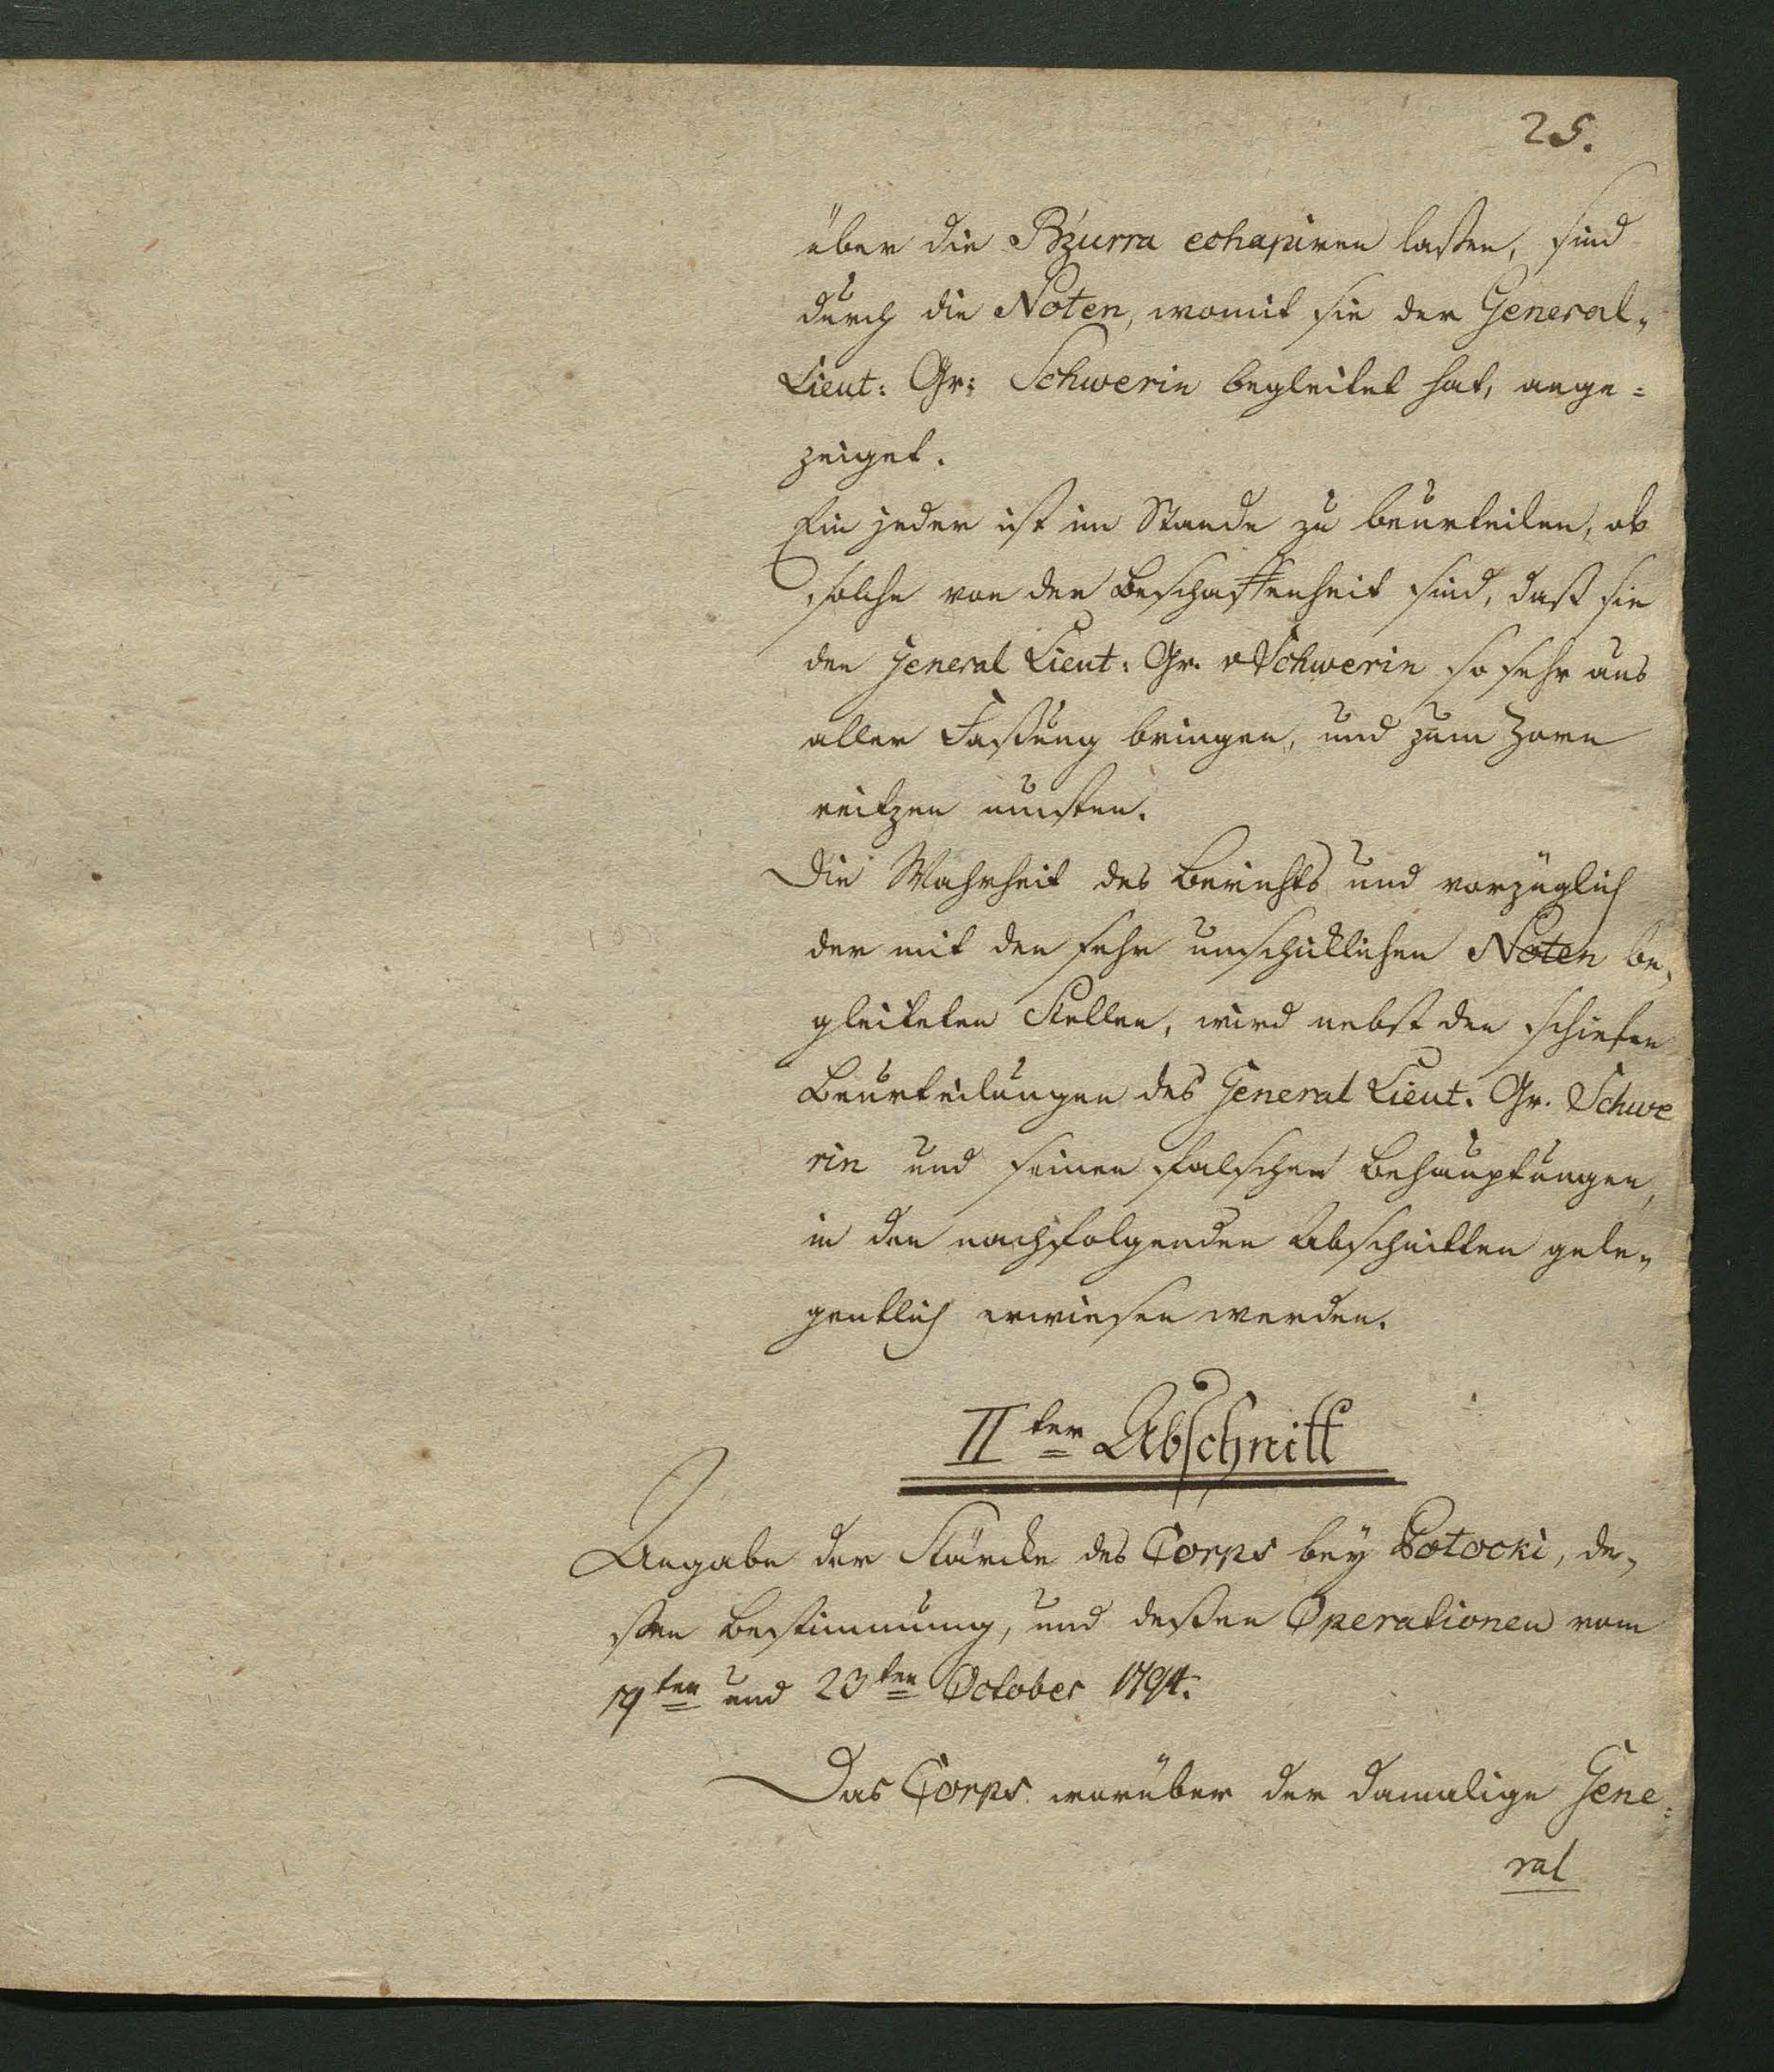 25.
über die Bzurra echapiren laßen, sind
durch die Noten, womit sie der General„
Lieut: Gr: Schwerin begleitet hat, ange=
zeiget.
Ein jeder ist im Stande zu beurteilen, ob
solche von der Beschaffenheit sind, daß sie
den General Lieut: Gr. v Schwerin so sehr aus
aller Faßung bringen, und zum Zorn
reitzen musten.
Die Wahrheit des Berichts und vorzüglich
der mit den sehr unschicklichen Noten be„
gleiteten Stellen, wird nebst den schiefen
Beurteilungen des General Lieut. Gr. Schwe
rin und seinen falschen Behauptungen,
in den nachfolgenden Abschnitten gele„
gentlich erwiesen werden.
IIter Abschnitt
Angabe der Stärcke des Corps bey Potocki, de„
ßen Bestimmung, und deßen Operationen vom
19ten und 23ten October 1794.
Das Corps worüber der damalige Gene=
ral